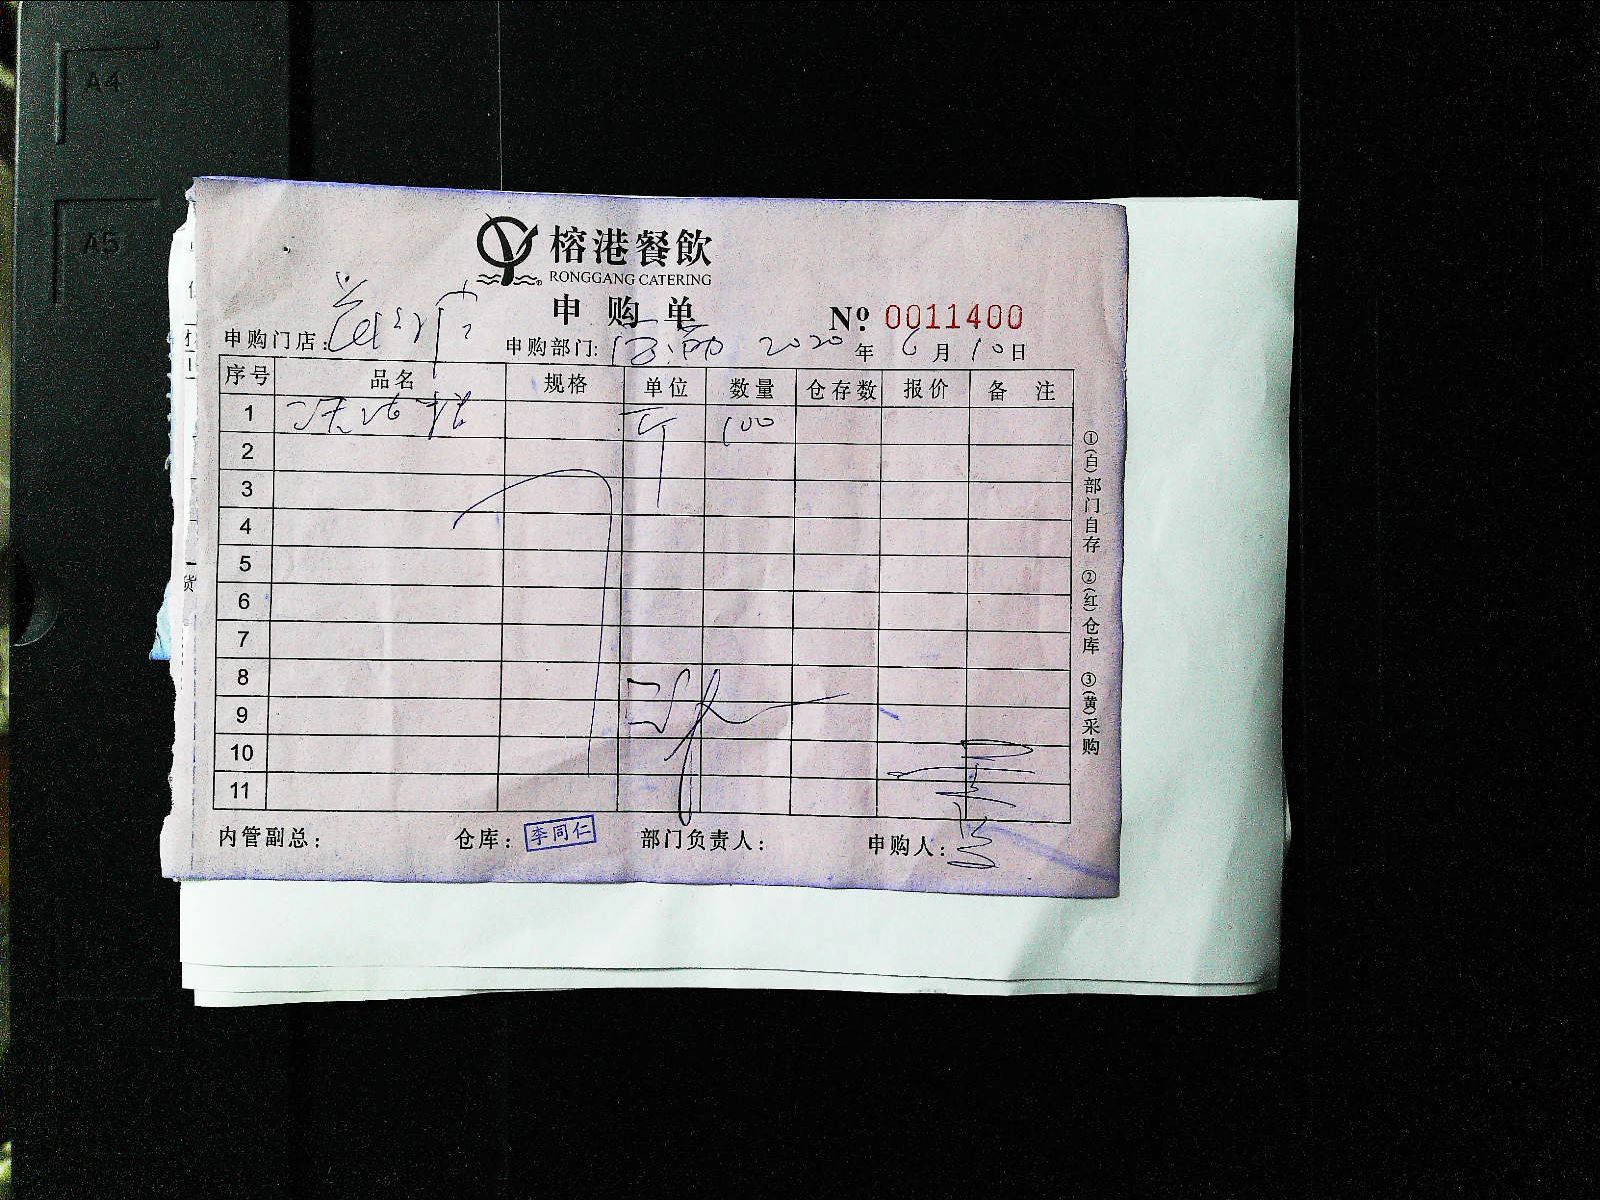 A4
A5
榕港餐飲
RONGGANG CATERING
申购单
№ 0011400
申购门店：
申购部门： 2020年6月10日
序号 品名 规格 单位 数量 仓存数 报价 备注
1 斤 100
2
3
4
5
6
7
8
9
10
11
①(白)部门自存 ②(红)仓库 ③(黄)采购
内管副总： 仓库：李同仁 部门负责人： 申购人：
货